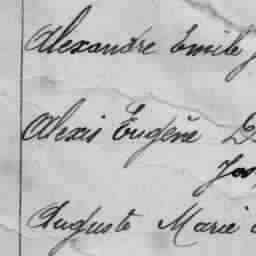 Alexandre Emile
Alexis Eugène
Auguste Marie